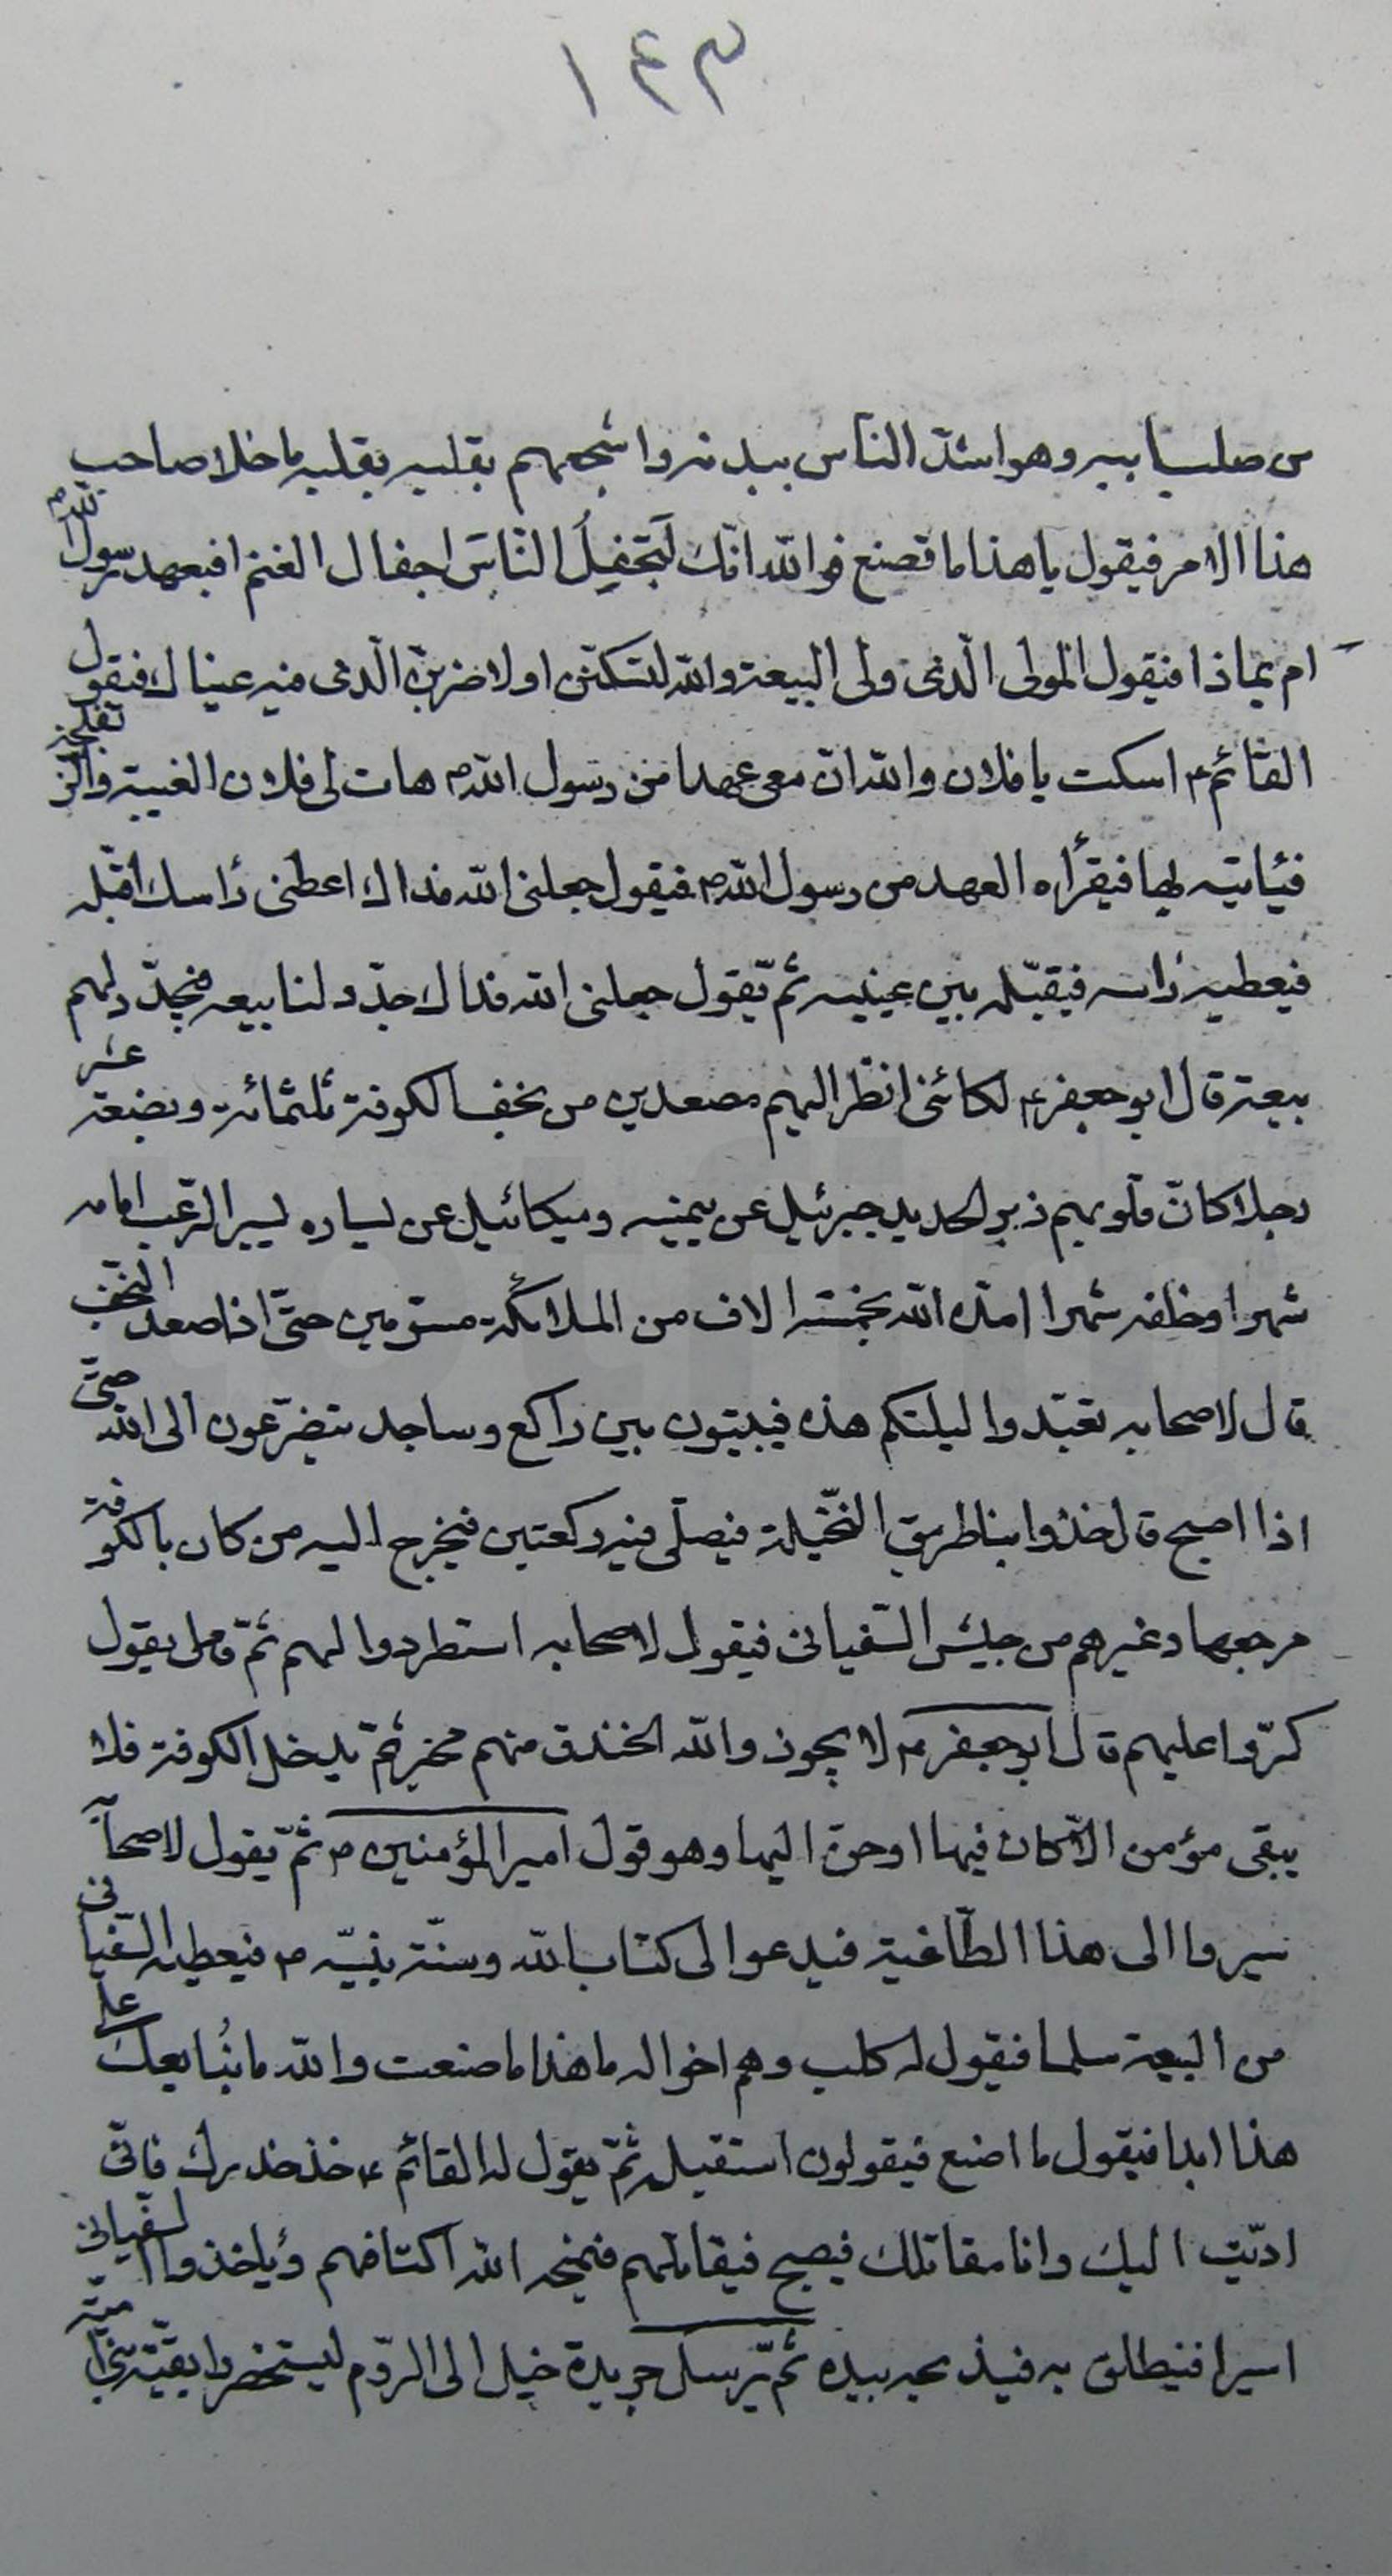 ١٤٣
من صلب ابيه وهو اشدّ الناس ببدنه واشجعهم بقلبه بقلبه ما خلا صاحب
هذا الامر فيقول يا هذا ما تصنع فوالله انّك لَتجفِلُ النّاسَ اجفال الغنم افبعهد رسول الله ص
ام بماذا فيقول المولى الّذى ولى البيعة والله لتسكتنّ او لاضربنّ الّذى فيه عيناك فيقول
القائم ع اسكت يا فلان والله انّ معى عهدا من رسول الله ص هات لى فلان العيبة
فيأتيه بها فيقرأه العهد من رسول الله ص فيقول جعلنى الله فداك اعطنى رأسك اقبّله
فيعطيه رأسه فيقبّله بين عينيه ثمّ يقول جعلنى الله فداك جدّد لنا بيعه فيجدّد لهم
بيعة قال ابو جعفر ع لكأنّى انظر اليهم مصعدين من نجف الكوفة ثلثمائة وبضعة عشر
رجلا كانّ قلوبهم زبر الحديد جبرئيل عن يمينه وميكائيل عن يساره يسير الرّعب امامه
شهرا وخلفه شهرا امدّه الله بخمسة الاف من الملائكة مسوّمين حتّى اذا صعد النّجف
قال لاصحابه تعبّدوا ليلتكم هذه فيبيتون بين راكع وساجد يتضرّعون الى الله حتّى
اذا اصبح قال خذوا بنا طريق النّخيلة فيصلّى فيه ركعتين فيخرج اليه من كان بالكوفة
مرجعها وغيرهم من جيش السّفيانى فيقول لاصحابه استطردوا لهم ثمّ يقول
كرّوا عليهم قال ابو جعفر ع لا يجوز والله الخندق منهم مخبر ثمّ يدخل الكوفة فلا
يبقى مؤمن الّا كان فيها او حنّ اليها وهو قول امير المؤمنين ع ثمّ يقول لاصحابه
سيروا الى هذا الطّاغية فيدعو الى كتاب الله وسنّة نبيّه ص فيعطيه السّفيانى
من البيعة سلما فيقول له كلب وهم اخواله ما هذا ما صنعت والله ما نُبايعك على
هذا ابدا فيقول ما اصنع فيقولون استقبله ثمّ يقول له القائم ع خذ حذرك فانّى
ادّيت اليك وانا مقاتلك فيصبح فيقاتلهم فيمنحه الله اكتافهم ويأخذوا السّفيانى
اسيرا فينطلق به فيذبحه بيده ثمّ يرسل جريدة خيل الى الرّوم ليستحضروا بقيّة بنى اميّة